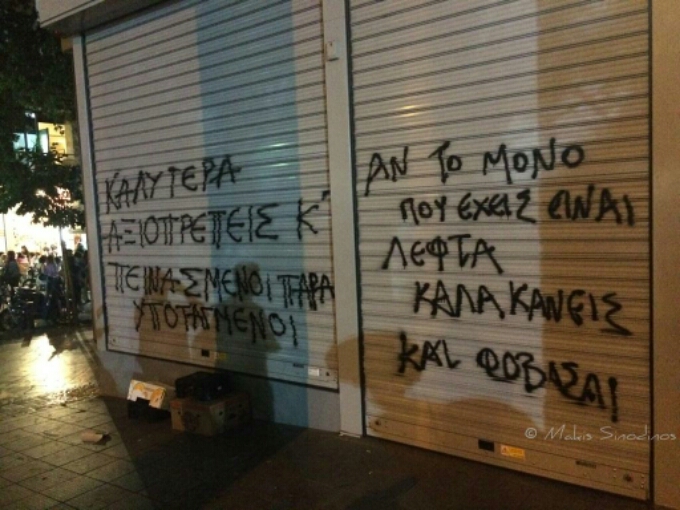 ΚΑΛΥΤΕΡΑ
ΑΞΙΟΠΡΕΠΕΙΣ Κ'
ΠΕΙΝΑΣΜΕΝΟΙ ΠΑΡΑ
ΥΠΟΤΑΓΜΕΝΟΙ
ΑΝ ΤΟ ΜΟΝΟ
ΠΟΥ ΕΧΕΙΣ ΕΙΝΑΙ
ΛΕΦΤΑ
ΚΑΛΑ ΚΑΝΕΙΣ
ΚΑΙ ΦΟΒΑΣΑΙ
© Makis Sinodinos